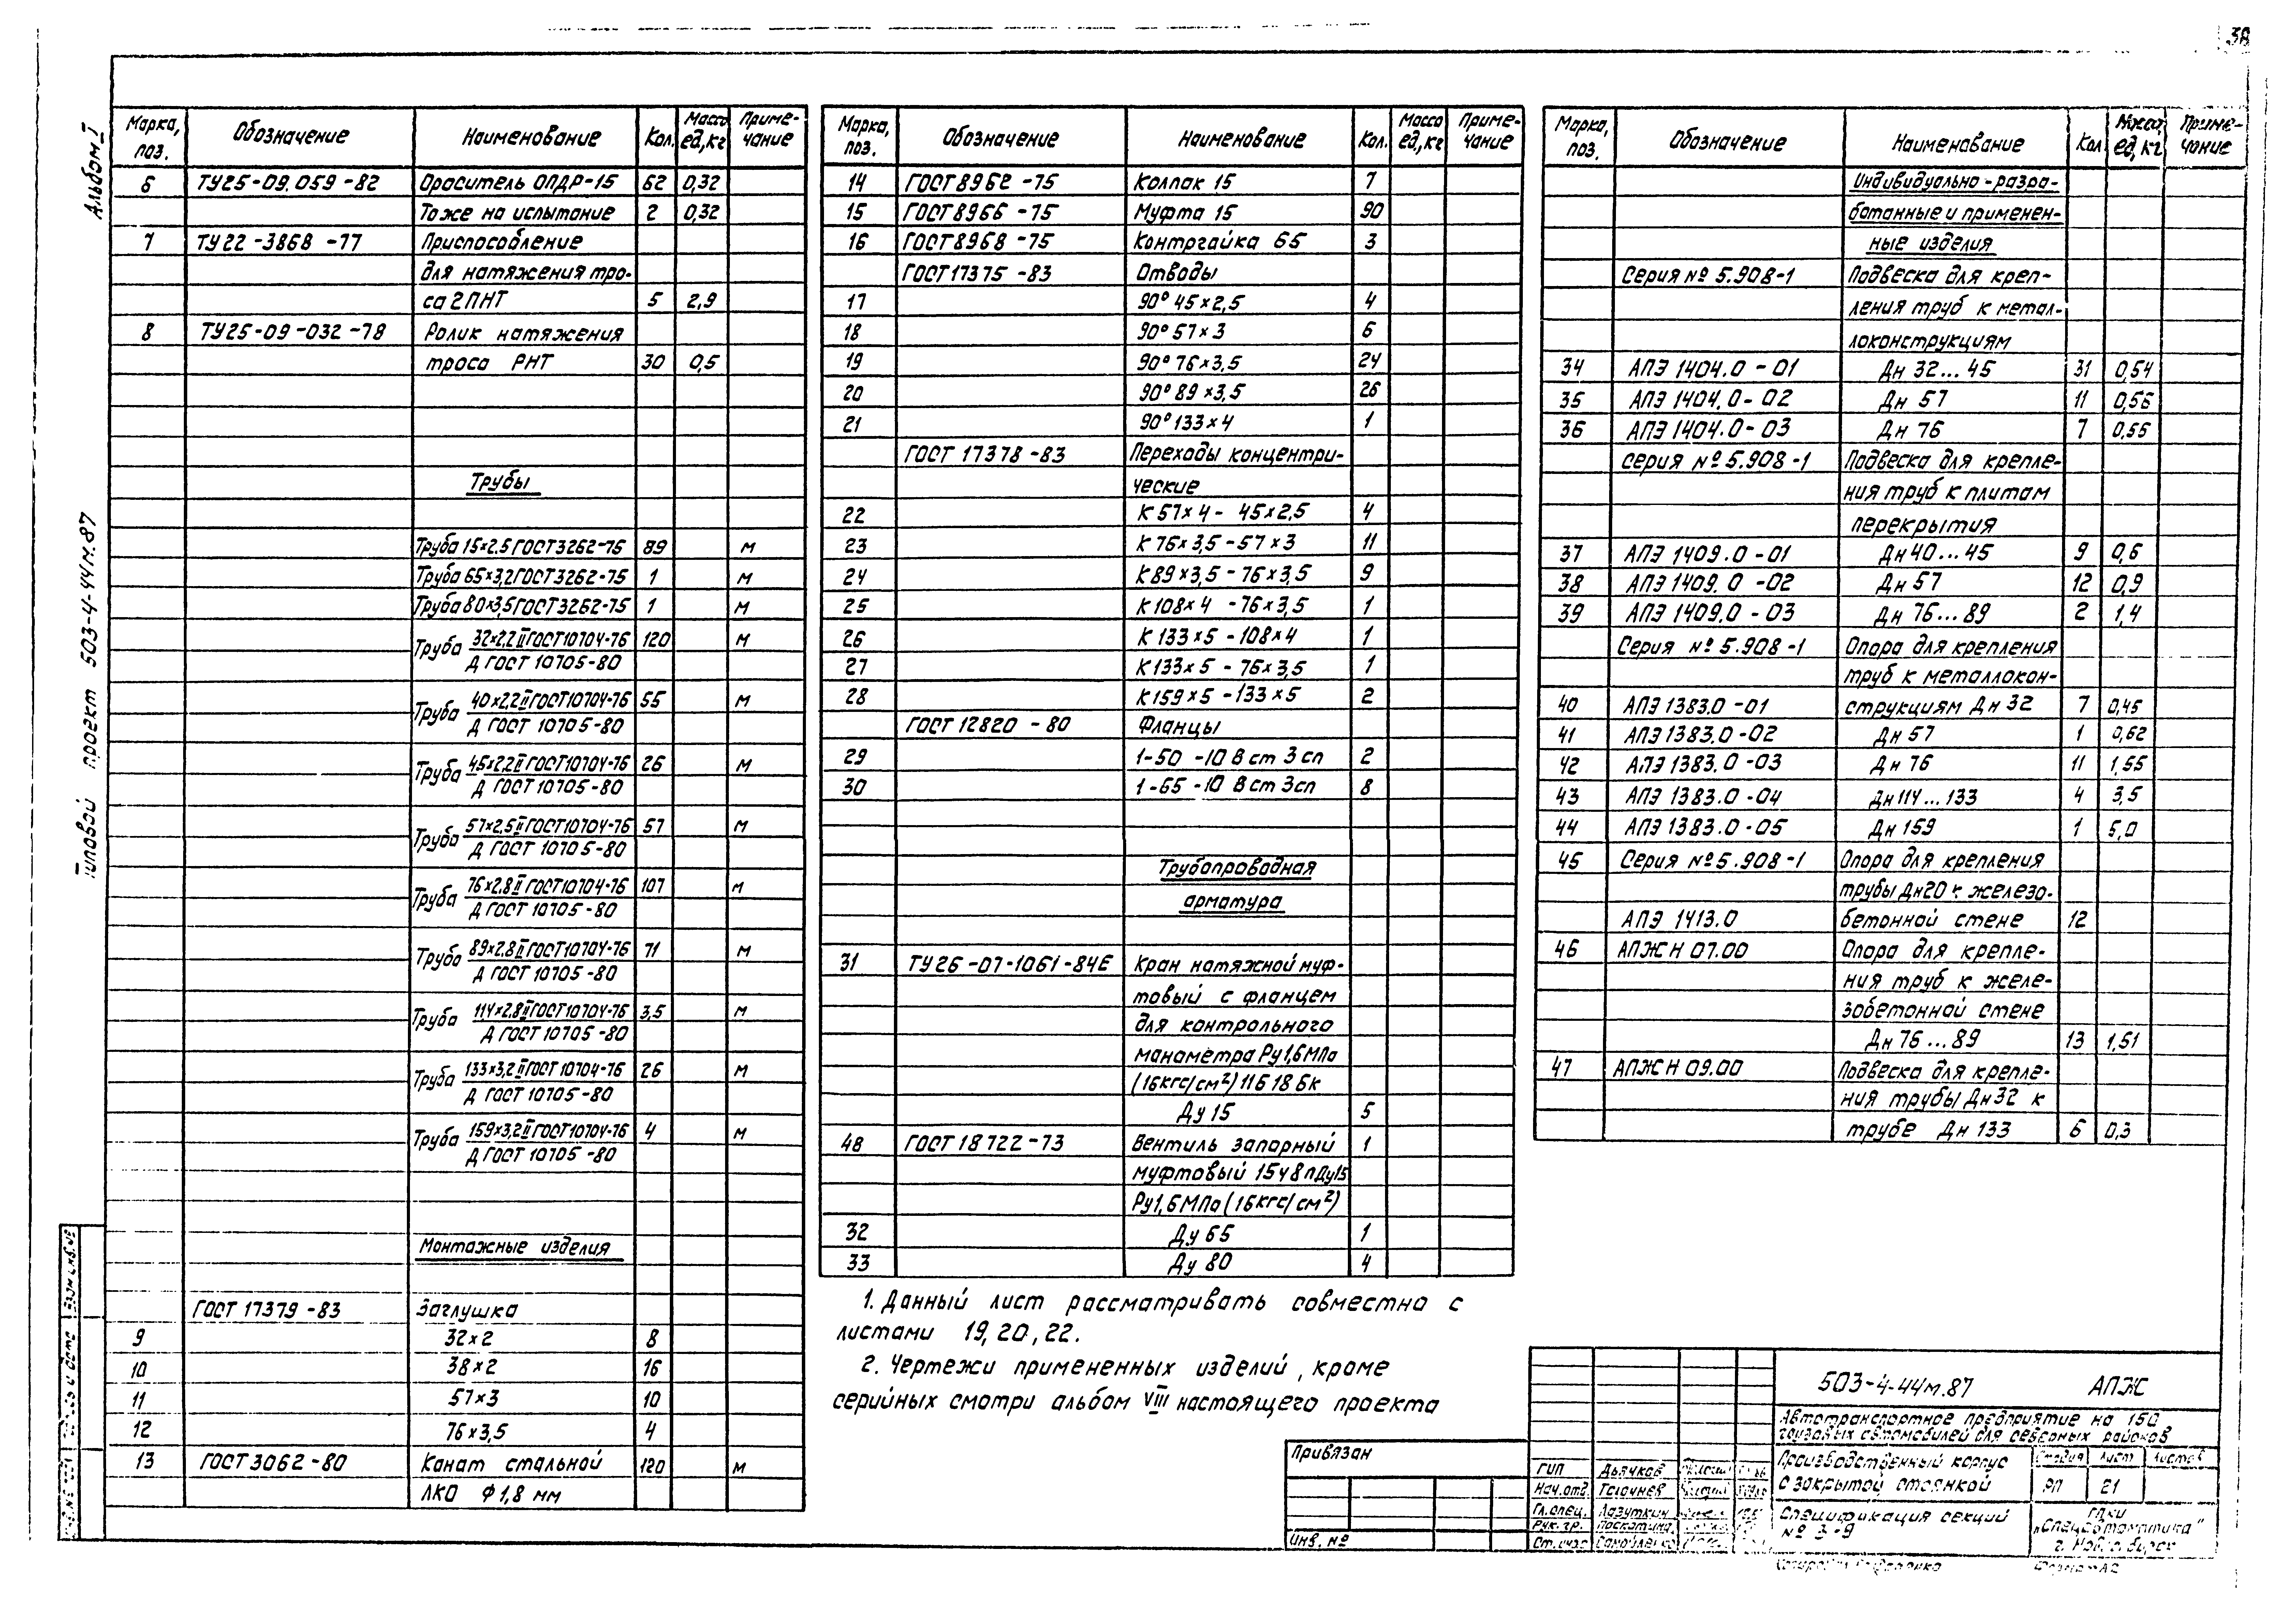 38
Альбом I
Типовой проект 503-4-44м.87
Марка, поз. Обозначение Наименование Кол. Масса ед,кг Приме-чание
6 ТУ25-09.059-82 Ороситель ОПДР-15 62 0,32
Тоже на испытание 2 0,32
7 ТУ22-3868-77 Приспособление
для натяжения тро-
са 2ПНТ 5 2,9
8 ТУ25-09-032-78 Ролик натяжения
троса РНТ 30 0,5
Трубы
Труба 15×2.5 ГОСТ3262-75 89 м
Труба 65×3,2 ГОСТ3262-75 1 м
Труба 80×3,5 ГОСТ3262-75 1 м
Труба 32×2,2 II ГОСТ10704-76 120 м
Д ГОСТ 10705-80
Труба 40×2,2 II ГОСТ10704-76 55 м
Д ГОСТ 10705-80
Труба 45×2,2 II ГОСТ10704-76 26 м
Д ГОСТ 10705-80
Труба 57×2,5 II ГОСТ10704-76 57 м
Д ГОСТ 10705-80
Труба 76×2,8 II ГОСТ10704-76 107 м
Д ГОСТ 10705-80
Труба 89×2,8 II ГОСТ10704-76 71 м
Д ГОСТ 10705-80
Труба 114×2,8 II ГОСТ10704-76 3,5 м
Д ГОСТ 10705-80
Труба 133×3,2 II ГОСТ10704-76 26 м
Д ГОСТ 10705-80
Труба 159×3,2 II ГОСТ10704-76 4 м
Д ГОСТ 10705-80
Монтажные изделия
ГОСТ 17379-83 Заглушка
9 32×2 8
10 38×2 16
11 57×3 10
12 76×3,5 4
13 ГОСТ 3062-80 Канат стальной 120 м
ЛКО Ф1,8 мм
Марка, поз. Обозначение Наименование Кол. Масса ед,кг Приме-чание
14 ГОСТ8962-75 Колпак 15 7
15 ГОСТ8966-75 Муфта 15 90
16 ГОСТ8968-75 Контргайка 65 3
ГОСТ17375-83 Отводы
17 90° 45×2,5 4
18 90° 57×3 6
19 90° 76×3,5 24
20 90° 89×3,5 26
21 90° 133×4 1
ГОСТ 17378-83 Переходы концентри-
ческие
22 К 57×4 - 45×2,5 4
23 К 76×3,5-57×3 11
24 К89×3,5-76×3,5 9
25 К108×4 -76×3,5 1
26 К 133×5 -108×4 1
27 К133×5 -76×3,5 1
28 К159×5 -133×5 2
ГОСТ 12820-80 Фланцы
29 1-50-10 В ст 3 сп 2
30 1-65-10 В ст 3сп 8
Трубопроводная
арматура
31 ТУ26-07-1061-84Е Кран натяжной муф-
товый с фланцем
для контрольного
манометра Ру1,6МПа
(16кгс/см²) 11Б18бк
Ду 15 5
48 ГОСТ 18722-73 Вентиль запорный 1
муфтовый 15ч8пДу15
Ру1,6МПа (16кгс/см²)
32 Ду 65 1
33 Ду 80 4
1. Данный лист рассматривать совместно с
листами 19, 20, 22.
2. Чертежи примененных изделий, кроме
серийных смотри альбом VIII настоящего проекта
Марка, поз. Обозначение Наименование Кол Масса, ед,кг Приме-чание
Индивидуально-разра-
ботанные и применен-
ные изделия
Серия № 5.908-1 Подвеска для креп-
ления труб к метал-
локонструкциям
34 АПЭ 1404.0-01 Дн 32...45 31 0,54
35 АПЭ 1404.0-02 Дн 57 11 0,56
36 АПЭ 1404.0-03 Дн 76 7 0,56
Серия № 5.908-1 Подвеска для крепле-
ния труб к плитам
перекрытия
37 АПЭ 1409.0-01 Дн 40...45 9 0,6
38 АПЭ 1409.0-02 Дн 57 12 0,9
39 АПЭ 1409.0-03 Дн 76...89 2 1,4
Серия № 5.908-1 Опора для крепления
труб к металлокон-
40 АПЭ 1383.0-01 струкциям Дн 32 7 0,45
41 АПЭ 1383.0-02 Дн 57 1 0,62
42 АПЭ 1383.0-03 Дн 76 11 1,55
43 АПЭ 1383.0-04 Дн 114...133 4 3,5
44 АПЭ 1383.0-05 Дн 159 1 5,0
45 Серия № 5.908-1 Опора для крепления
трубы Дн20 к железо-
АПЭ 1413.0 бетонной стене 12
46 АПЖ Н 07.00 Опора для крепле-
ния труб к желе-
зобетонной стене
Дн 76...89 13 1,51
47 АПЖ Н 09.00 Подвеска для крепле-
ния трубы Дн32 к
трубе Дн 133 6 0,3
Привязан
Инв. №
503-4-44м.87 АПЖ
Автотранспортное предприятие на 150
грузовых автомобилей для северных районов
Производственный корпус
с закрытой стоянкой
Стадия Лист Листов
РП 21
Спецификация секций
№ 3-9
ГПКИ
"Спецавтоматика"
ГИП Дьячков
Нач.отд.
Гл.спец. Лазуткин
Рук. гр.
Ст. инж Самойленко
Формат А2